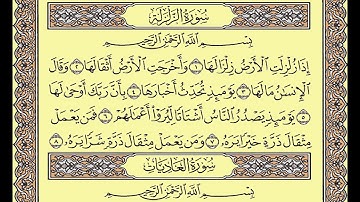 سُورَةُ الزَّلْزَلَةِ
بِسْمِ اللَّهِ الرَّحْمَٰنِ الرَّحِيمِ
إِذَا زُلْزِلَتِ الْأَرْضُ زِلْزَالَهَا ١ وَأَخْرَجَتِ الْأَرْضُ أَثْقَالَهَا ٢ وَقَالَ
الْإِنسَٰنُ مَا لَهَا ٣ يَوْمَئِذٍ تُحَدِّثُ أَخْبَارَهَا ٤ بِأَنَّ رَبَّكَ أَوْحَىٰ لَهَا
٥ يَوْمَئِذٍ يَصْدُرُ النَّاسُ أَشْتَاتًا لِّيُرَوْا أَعْمَٰلَهُمْ ٦ فَمَن يَعْمَلْ
مِثْقَالَ ذَرَّةٍ خَيْرًا يَرَهُ ٧ وَمَن يَعْمَلْ مِثْقَالَ ذَرَّةٍ شَرًّا يَرَهُ ٨
سُورَةُ الْعَادِيَاتِ
بِسْمِ اللَّهِ الرَّحْمَٰنِ الرَّحِيمِ